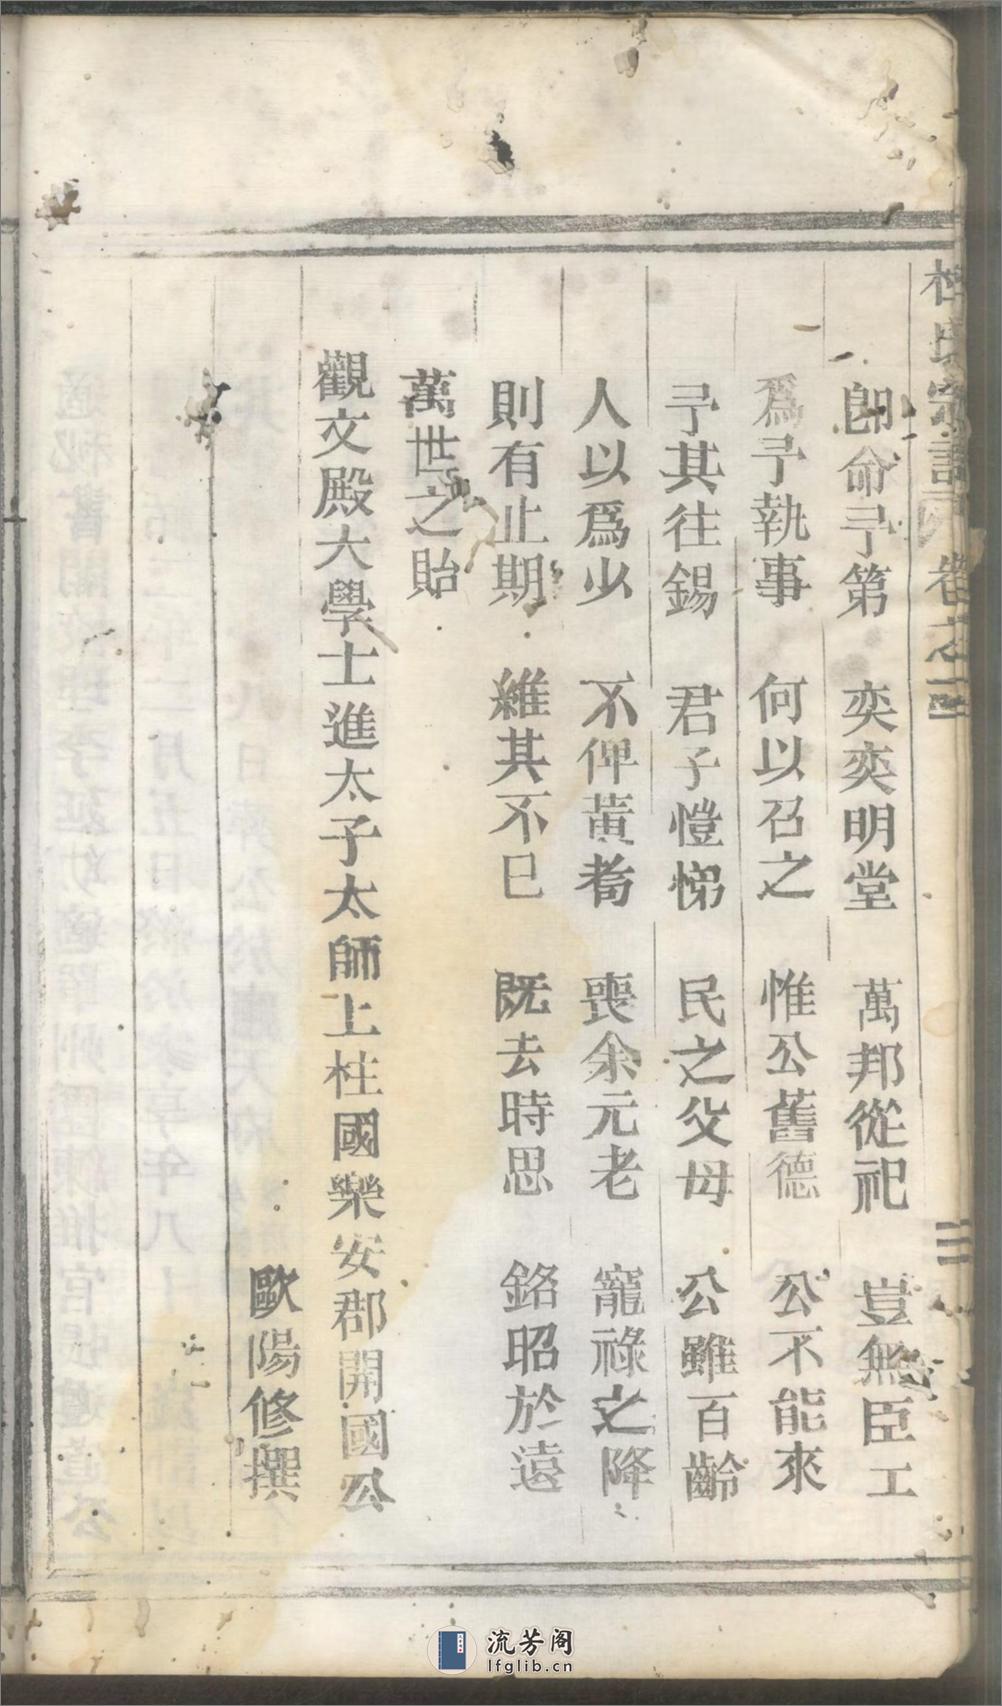 杜氏宗譜 卷之一
二
卽命予第　奕奕明堂　萬邦從祀　豈無臣工
爲予執事　何以召之　惟公舊德　公不能來
予其往錫　君子愷悌　民之父母　公雖百齡
人以爲少　不俾黃耈　喪余元老　寵祿之降
則有止期　維其不已　旣去時思　銘昭於遠
萬世之貽
觀文殿大學士進太子太師上柱國樂安郡開國公
歐陽修撰
流芳阁
lfglib.cn